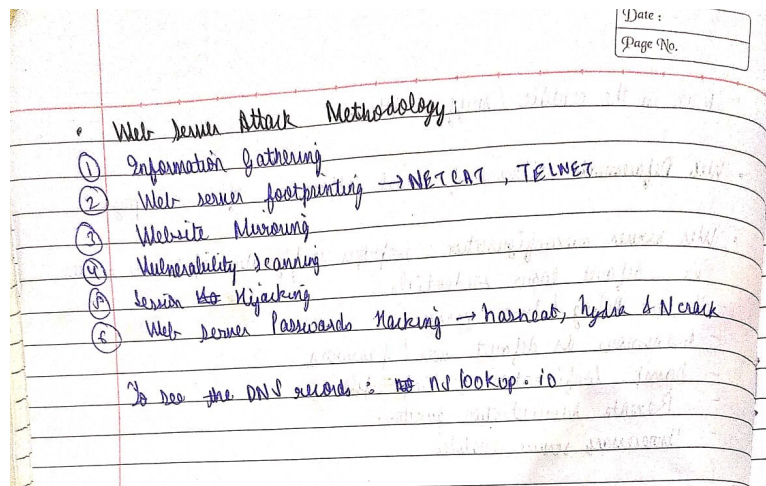 Date :
Page No.
• Web Server Attack Methodology :
① Information Gathering
② Web server footprinting → NETCAT , TELNET
③ Website Mirroring
④ Vulnerability Scanning
⑤ Session Hijacking
⑥ Web server Passwords Hacking → hashcat, hydra & Ncrack
To see the DNS records : nslookup.io